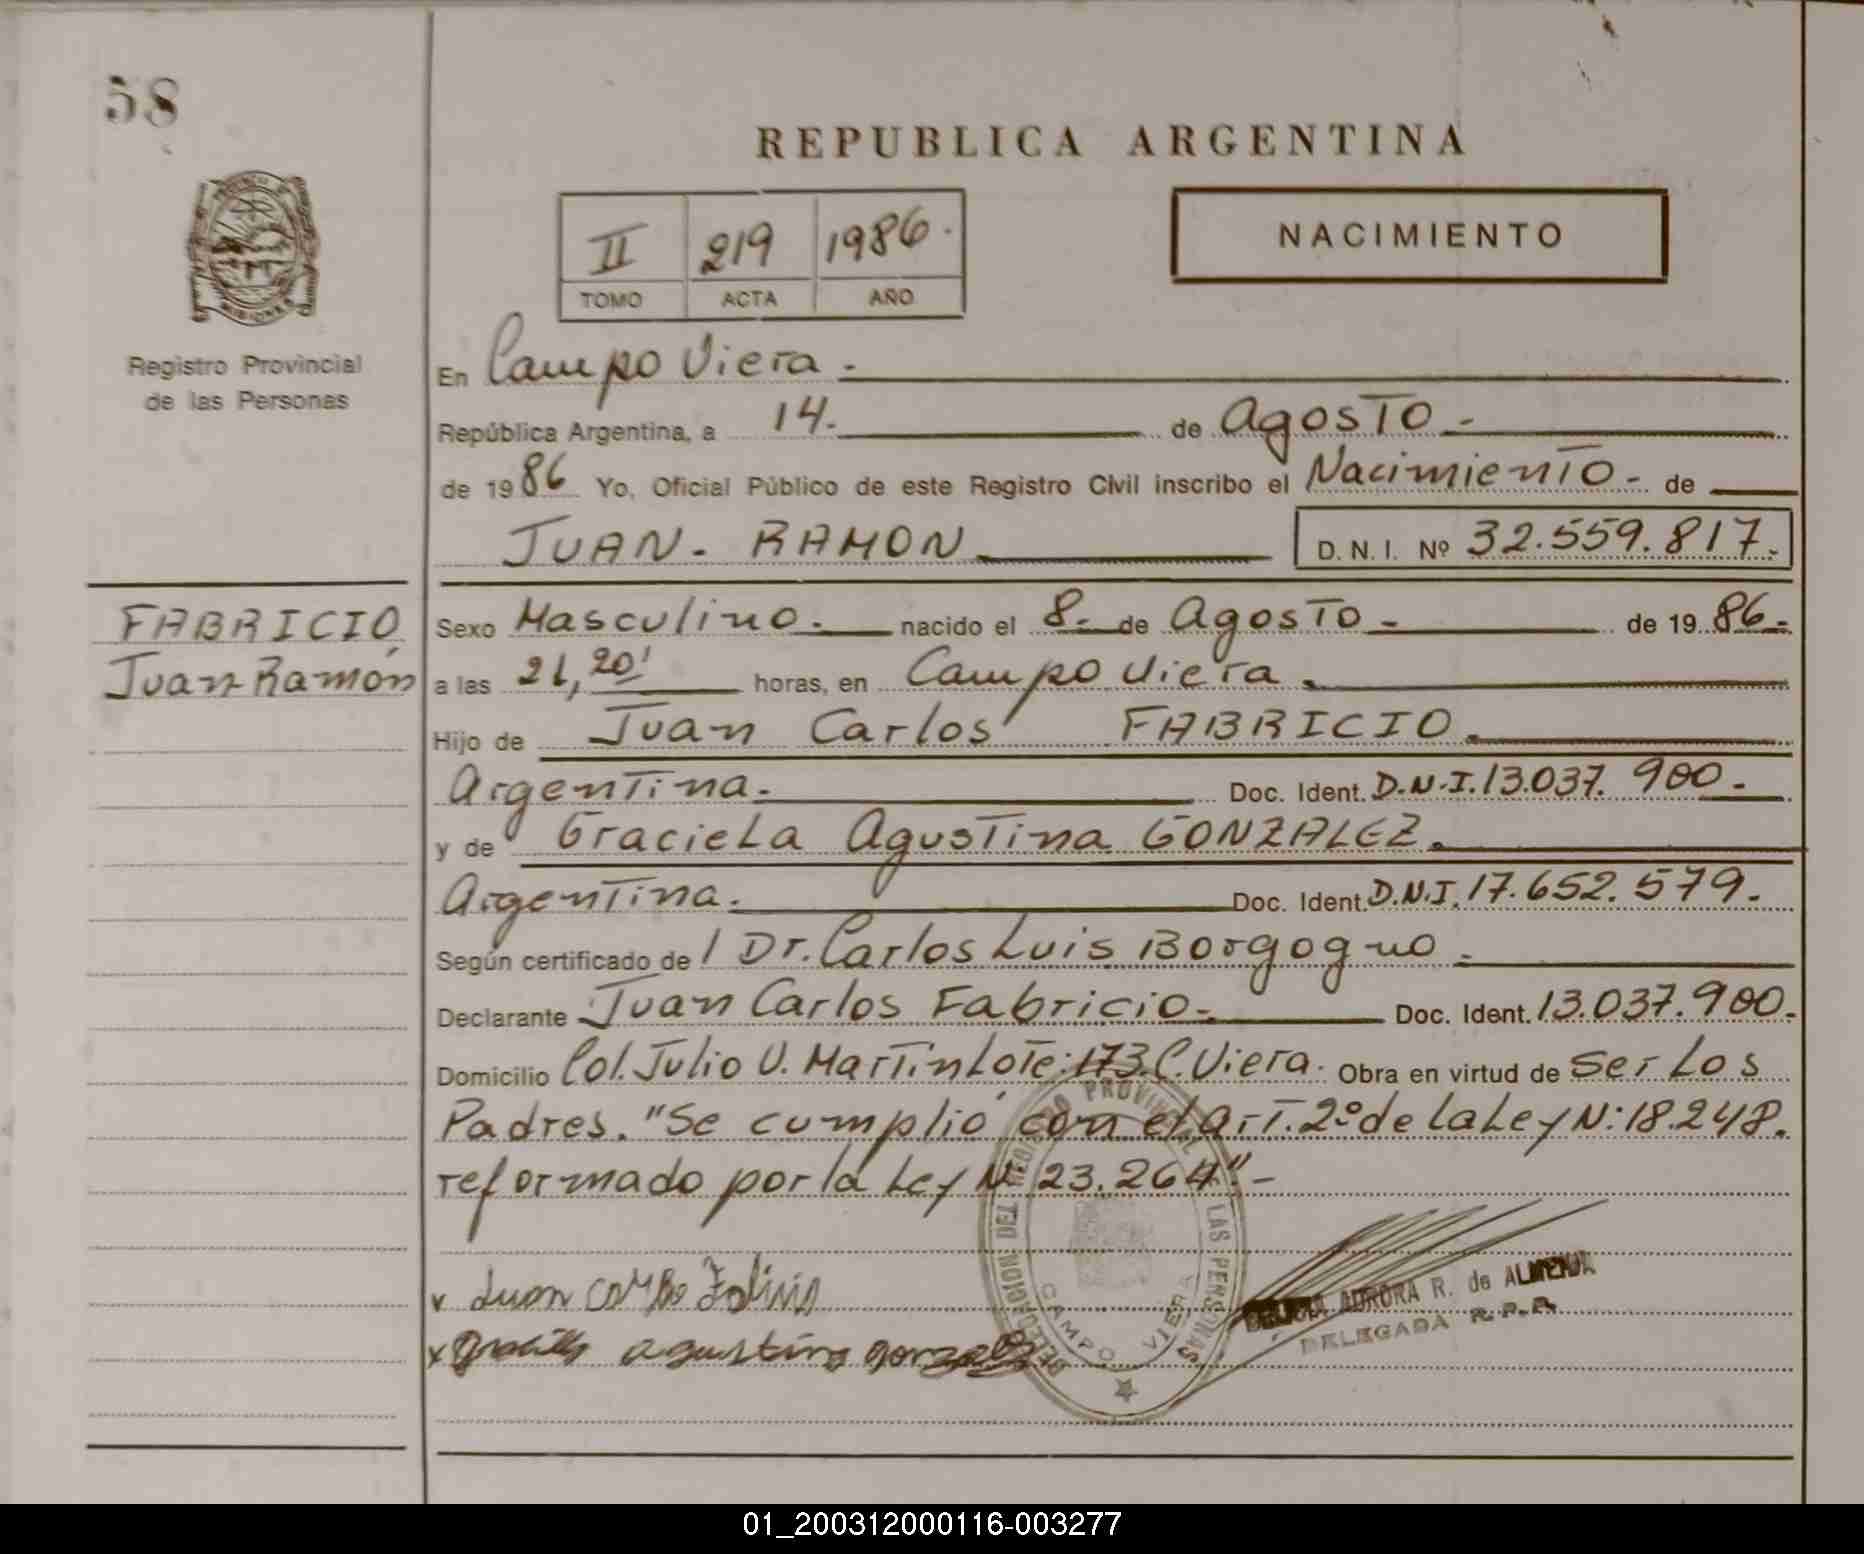 58
REPUBLICA ARGENTINA
II 219 1986.
TOMO ACTA AÑO
NACIMIENTO
Registro Provincial
de las Personas
En Campo Viera.
República Argentina, a 14. de Agosto -
de 1986 Yo, Oficial Público de este Registro Civil inscribo el Nacimiento - de
JUAN - RAMON D.N.I. Nº 32.559.817.
FABRICIO,
Juan Ramón
Sexo Masculino. nacido el 8- de Agosto - de 1986-
a las 21,20' horas, en Campo Viera.
Hijo de Juan Carlos FABRICIO.
Argentina. Doc. Ident. D.N.I. 13.037.900.-
y de Graciela Agustina GONZALEZ.
Argentina. Doc. Ident. D.N.I. 17.652.579.
Según certificado de l Dr. Carlos Luis Borgogno -
Declarante Juan Carlos Fabricio - Doc. Ident. 13.037.900.
Domicilio Col. Julio U. Martin Lote: 173 C. Viera. Obra en virtud de ser los
Padres. "Se cumplió con el Art. 2º de la Ley N: 18.248.
reformado por la Ley Nº 23.264".-
DELEGACION DEL REGISTRO PROVINCIAL DE LAS PERSONAS
CAMPO VIERA
x Juan
x agustina gonzalez
AURORA R. de ALMENJA
DELEGADA R.P.P.
01_200312000116-003277